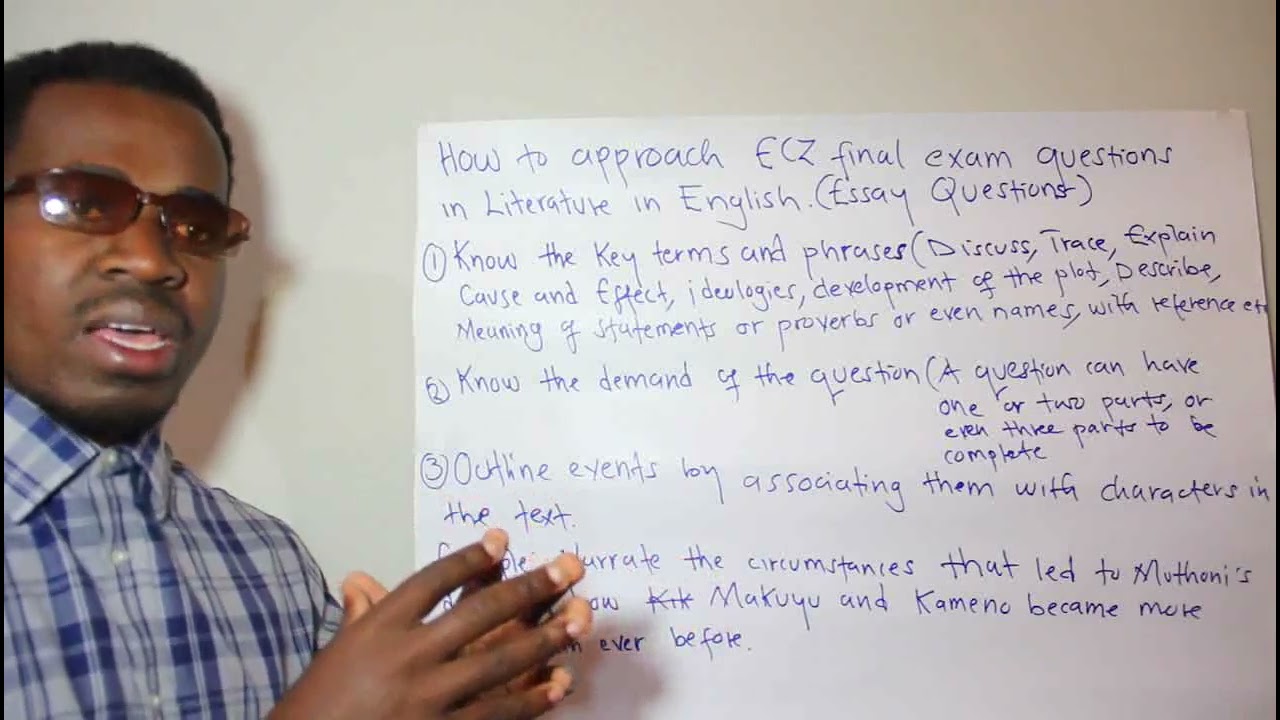 How to approach ECZ final exam questions
in Literature in English. (Essay Questions)
① Know the Key terms and phrases (Discuss, Trace, Explain
Cause and Effect, ideologies, development of the plot, Describe,
Meaning of statements or proverbs or even names, with reference etc
② Know the demand of the question (A question can have
one or two parts, or
even three parts to be
complete
③ Outline events by associating them with characters in
the text.
the circumstances that led to Muthoni's
Makuyu and Kameno became more
ever before.